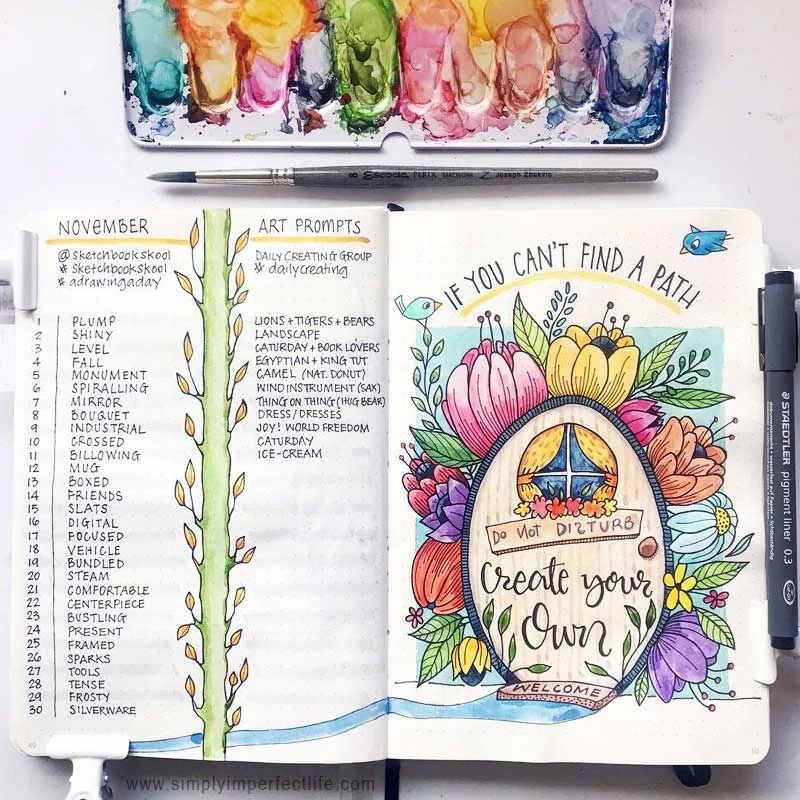 8 Escoda PERLA BARCELONA Joseph Zbukvic
NOVEMBER
@sketchbookskool
# sketchbookskool
# adrawingaday
1 PLUMP
2 SHINY
3 LEVEL
4 FALL
5 MONUMENT
6 SPIRALLING
7 MIRROR
8 BOUQUET
9 INDUSTRIAL
10 CROSSED
11 BILLOWING
12 MUG
13 BOXED
14 FRIENDS
15 SLATS
16 DIGITAL
17 FOCUSED
18 VEHICLE
19 BUNDLED
20 STEAM
21 COMFORTABLE
22 CENTERPIECE
23 BUSTLING
24 PRESENT
25 FRAMED
26 SPARKS
27 TOOLS
28 TENSE
29 FROSTY
30 SILVERWARE
ART PROMPTS
DAILY CREATING GROUP
# dailycreating
LIONS + TIGERS + BEARS
LANDSCAPE
CATURDAY + BOOK LOVERS
EGYPTIAN + KING TUT
CAMEL (NAT. DONUT)
WIND INSTRUMENT (SAX)
THING ON THING (HUG BEAR)
DRESS/DRESSES
JOY! WORLD FREEDOM
CATURDAY
ICE-CREAM
IF YOU CAN'T FIND A PATH
DO NOT DIZTURB
Create your
Own
WELCOME
STAEDTLER pigment liner 0.3
www.simplyimperfectlife.com